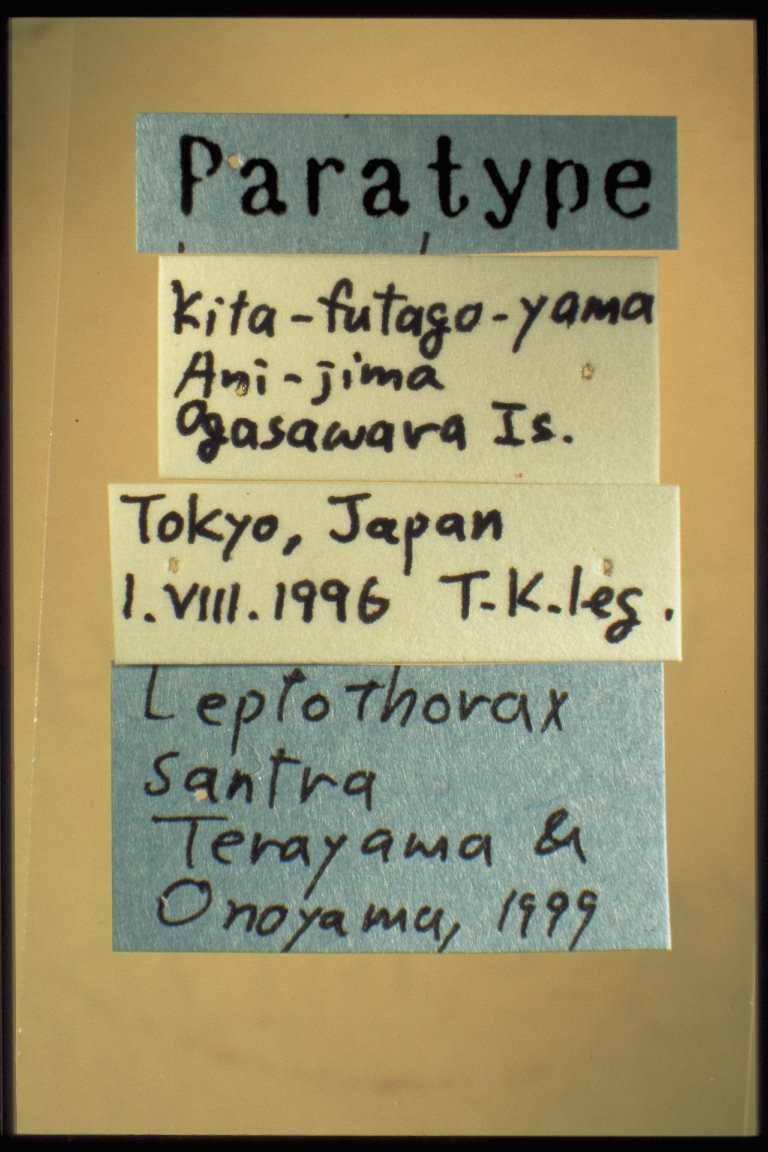 Paratype
Kita-futago-yama
Ani-jima
Ogasawara Is.
Tokyo, Japan
1.VIII.1996 T.K.leg.
Leptothorax
santra
Terayama &
Onoyama, 1999